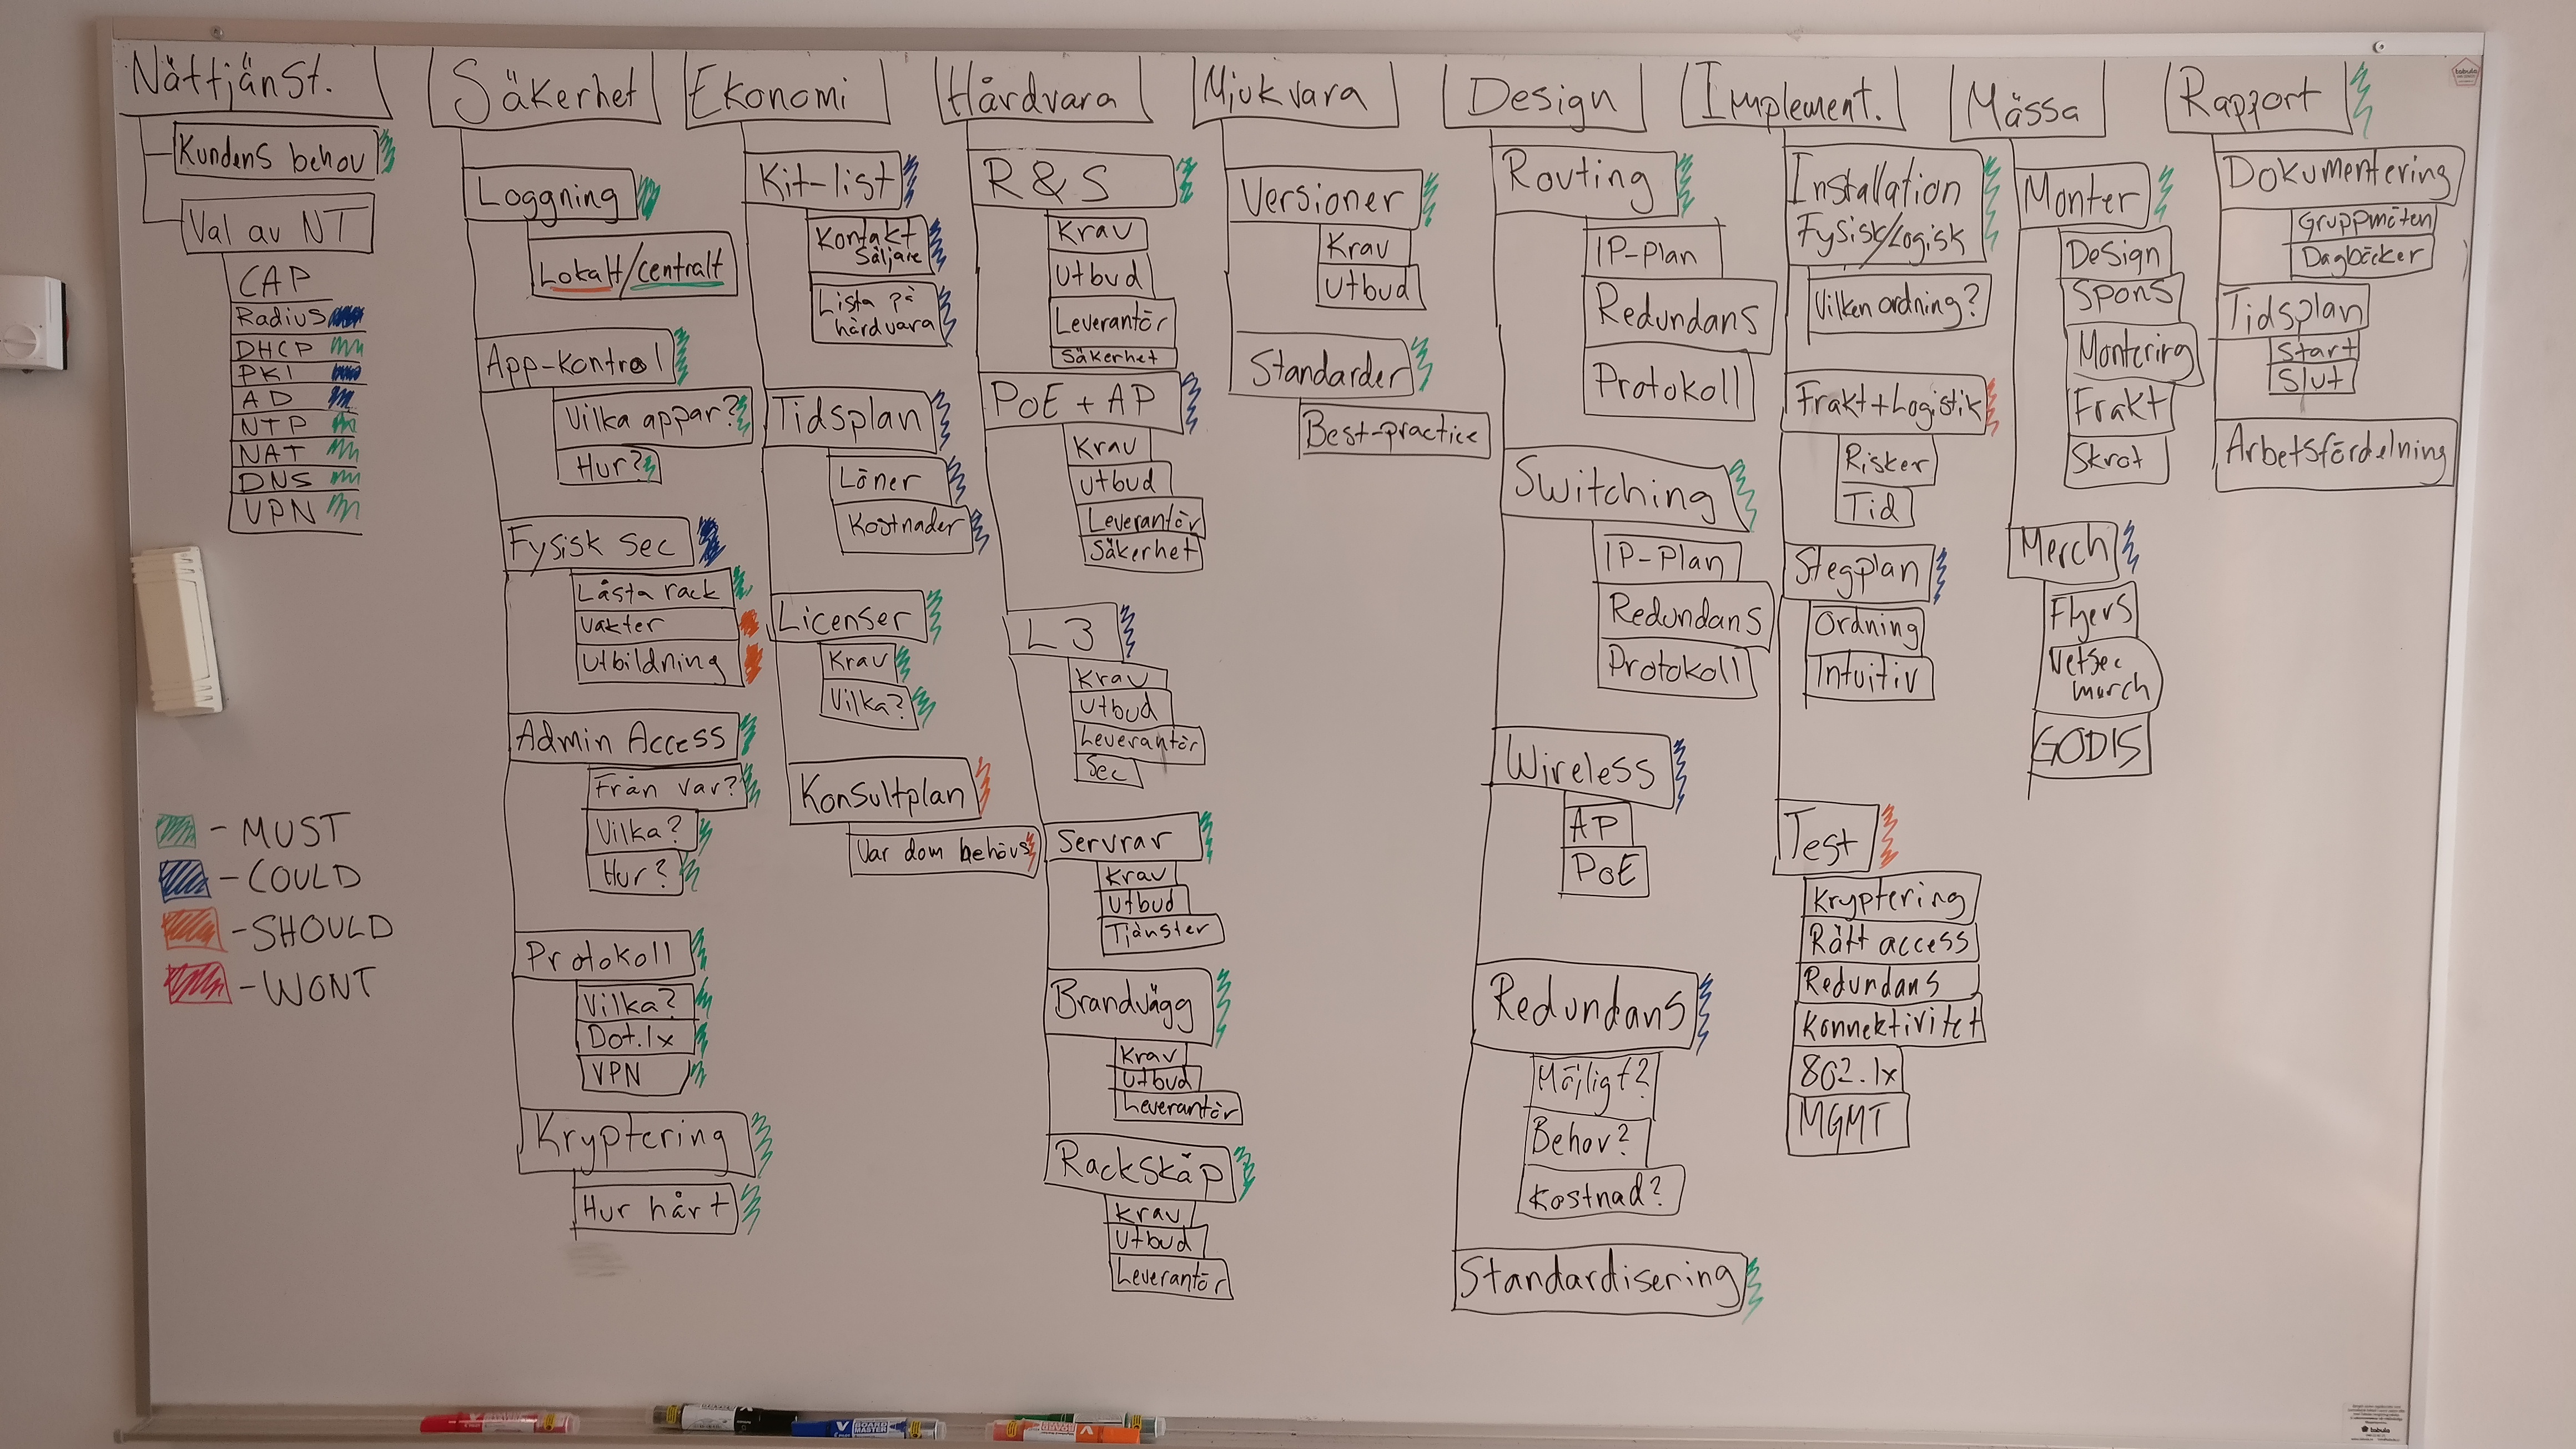 Nättjänst.
Kundens behov
Val av NT
CAP
Radius
DHCP
PKI
AD
NTP
NAT
DNS
VPN
- MUST
- COULD
- SHOULD
- WONT
Säkerhet
Loggning
Lokalt/centralt
App-kontrol
Vilka appar?
Hur?
Fysisk sec
Låsta rack
Vakter
Utbildning
Admin Access
Från var?
Vilka?
Hur?
Protokoll
Vilka?
Dot.1x
VPN
Kryptering
Hur hårt
Ekonomi
Kit-list
Kontakt
Säljare
Lista på
hårdvara
Tidsplan
Löner
Kostnader
Licenser
Krav
Vilka?
Konsultplan
Var dom behövs
Hårdvara
R & S
Krav
Utbud
Leverantör
Säkerhet
PoE + AP
Krav
Utbud
Leverantör
Säkerhet
L3
Krav
Utbud
Leverantör
Sec
Servrar
Krav
Utbud
Tjänster
Brandvägg
Krav
Utbud
Leverantör
Rackskåp
Krav
Utbud
Leverantör
Mjukvara
Versioner
Krav
Utbud
Standarder
Best-practice
Design
Routing
IP-Plan
Redundans
Protokoll
Switching
IP-Plan
Redundans
Protokoll
Wireless
AP
PoE
Redundans
Möjligt?
Behov?
Kostnad?
Standardisering
Implement.
Installation
Fysisk/Logisk
Vilken ordning?
Frakt+Logistik
Risker
Tid
Stegplan
Ordning
Intuitiv
Test
Kryptering
Rätt access
Redundans
Konnektivitet
802.1x
MGMT
Mässa
Monter
Design
Spons
Montering
Frakt
Skrot
Merch
Flyers
Netsec
merch
GODIS
Rapport
Dokumentering
Gruppmöten
Dagböcker
Tidsplan
Start
Slut
Arbetsfördelning
tabula